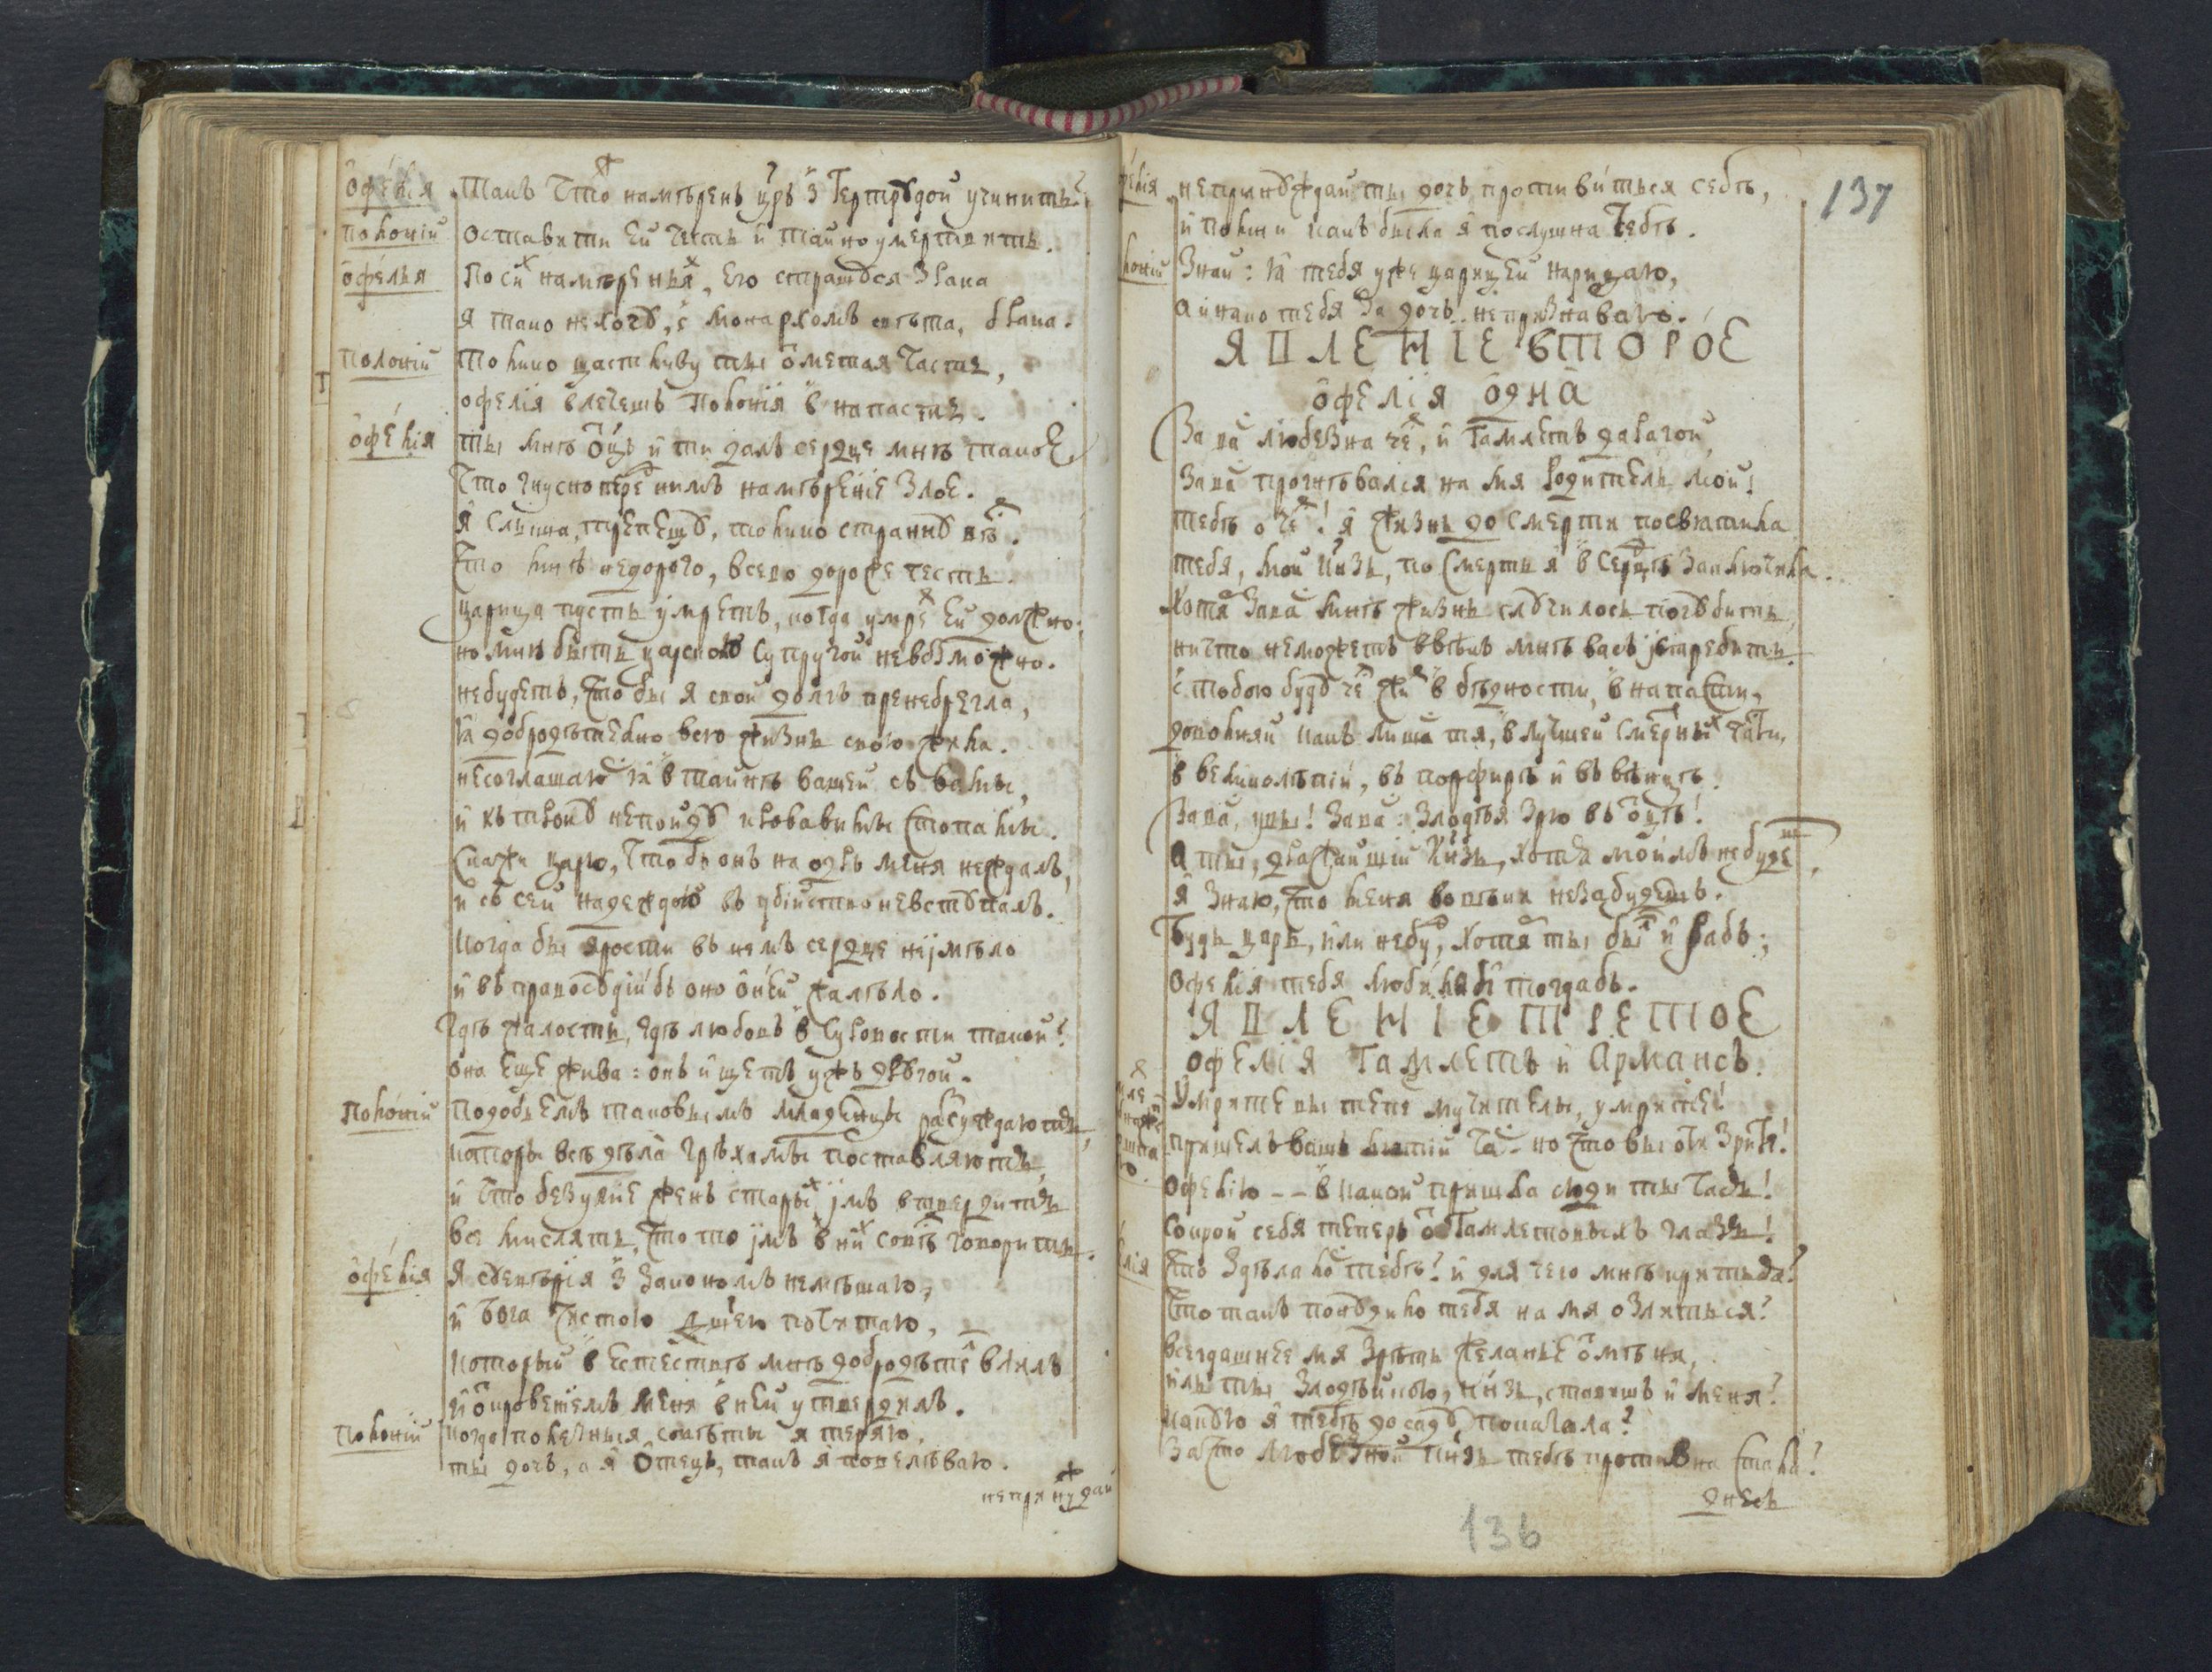 Офелія Такъ что намѣренъ црь з Гертрудой учинить?
Полоній Оставити ей честь и тайно умертвить.
Офелья По сих намѣренья, его страшуся зрака
я тако нехочу, с монархомъ свѣта, брака.
Полоній Толико щастливу ты ометая часть,
офелія влечешъ Полонія в напасть.
Офелія ты мнѣ оцъ и ти далъ сердце мнѣ такое
Что гнусно пере нимъ намѣреніе злое.
Я слыша, трепещу, толико страшну вѣ.
Что мнѣ недорого, всево дороже честь.
царица пусть умретъ, когда умре ей должно:
но мнѣ быть царскою супругой невозможно.
небудетъ, что бы я свой долгъ пренебрегла,
я добродѣтельно всю жизнь свою жила.
несоглашаю я в тайнѣ вашей съ вами,
и къ трону непойду кровавыми стопами.
Скажи царю, чтобъ онъ на одръ меня неждалъ,
и съ сей надеждою въ убійство невступалъ.
Когда бы ярости въ немъ сердце неімѣло
и въ правосудіи бъ оно о ней жалѣло.
Гдѣ жалость, гдѣ любовь в суровости такой?
она еще жива: онъ ищетъ ужъ другой.
Полоній Подобіемъ таковымъ младенцы разсуждаютъ,
которы всѣ дѣла грѣхами поставляютъ,
и что безуміе женъ старых імъ втвердитъ
всѣ мыслятъ, что то імъ в них совѣ говоритъ.
Офелія Я суевѣрія з закономъ немѣшаю,
и Бога чистою дшею почитаю,
который в естествѣ мнѣ добродѣте влилъ
и откровеніемъ меня в ней утвердилъ.
Полоній когда полезныя совѣты я теряю,
ты дочь, а я Отецъ, такъ я повелѣваю.
непринуждай
137
непринуждай ты дочь противиться себѣ,
и помни какъ была я послушна тебѣ.
Знай: я тебя уже царицей нарицаю,
а инако тебя за дочь непризнаваю.
ЯВЛЕНІЕ ВТОРОЕ
Офелія Одна
Зака любезна че, и Гамлетъ дарагой,
Зака прогнѣвался на мя Родитель мой!
тебѣ оче! я жизнь до смерти посвятила
тебя, мой Кнзь, по смерть я в сердцѣ заключила.
Хотя Зака мнѣ жизнь случилось погубить,
ничто неможетъ ввѣкъ мнѣ васъ істребити.
с тобою буду че жи в бѣдности, в напасти,
доколи какъ лиша тя, в лучшей смерных части,
в великолѣпіи, въ порфирѣ и въ вѣнцѣ.
Зака, увы! Зака: злодѣя зрю въ оцѣ!
А ты, дражайшій Кнзь, хотя моимъ небуде,
я знаю, что меня вовѣки незабудешъ.
Будь царь, или небу, хотя ты бы и рабъ;
Офелія тебя любила бъ и тогдабъ.
ЯВЛЕНІЕ ТРЕТІОЕ
Офелія Гамлетъ и Армансъ.
Умрите вы тепе мучители, умрите!
пришелъ вашъ лютій ча - но что вы очи зрите!
Офелію - - в какой пришла сюди ты часъ!
Сокрой себя теперь о Гамлетовыхъ глазъ!
Что здѣлало тебѣ? и для чего мнѣ крытьца?
Что такъ понудило тебя на мя озлиться?
всегдашнее мя зрѣть желанье отмѣня,
иль ты злодѣйкою, кнзь, ставишъ и меня?
какую я тебѣ досаду показала?
За что любезной кнзь тебѣ противна стала?
днесь
136